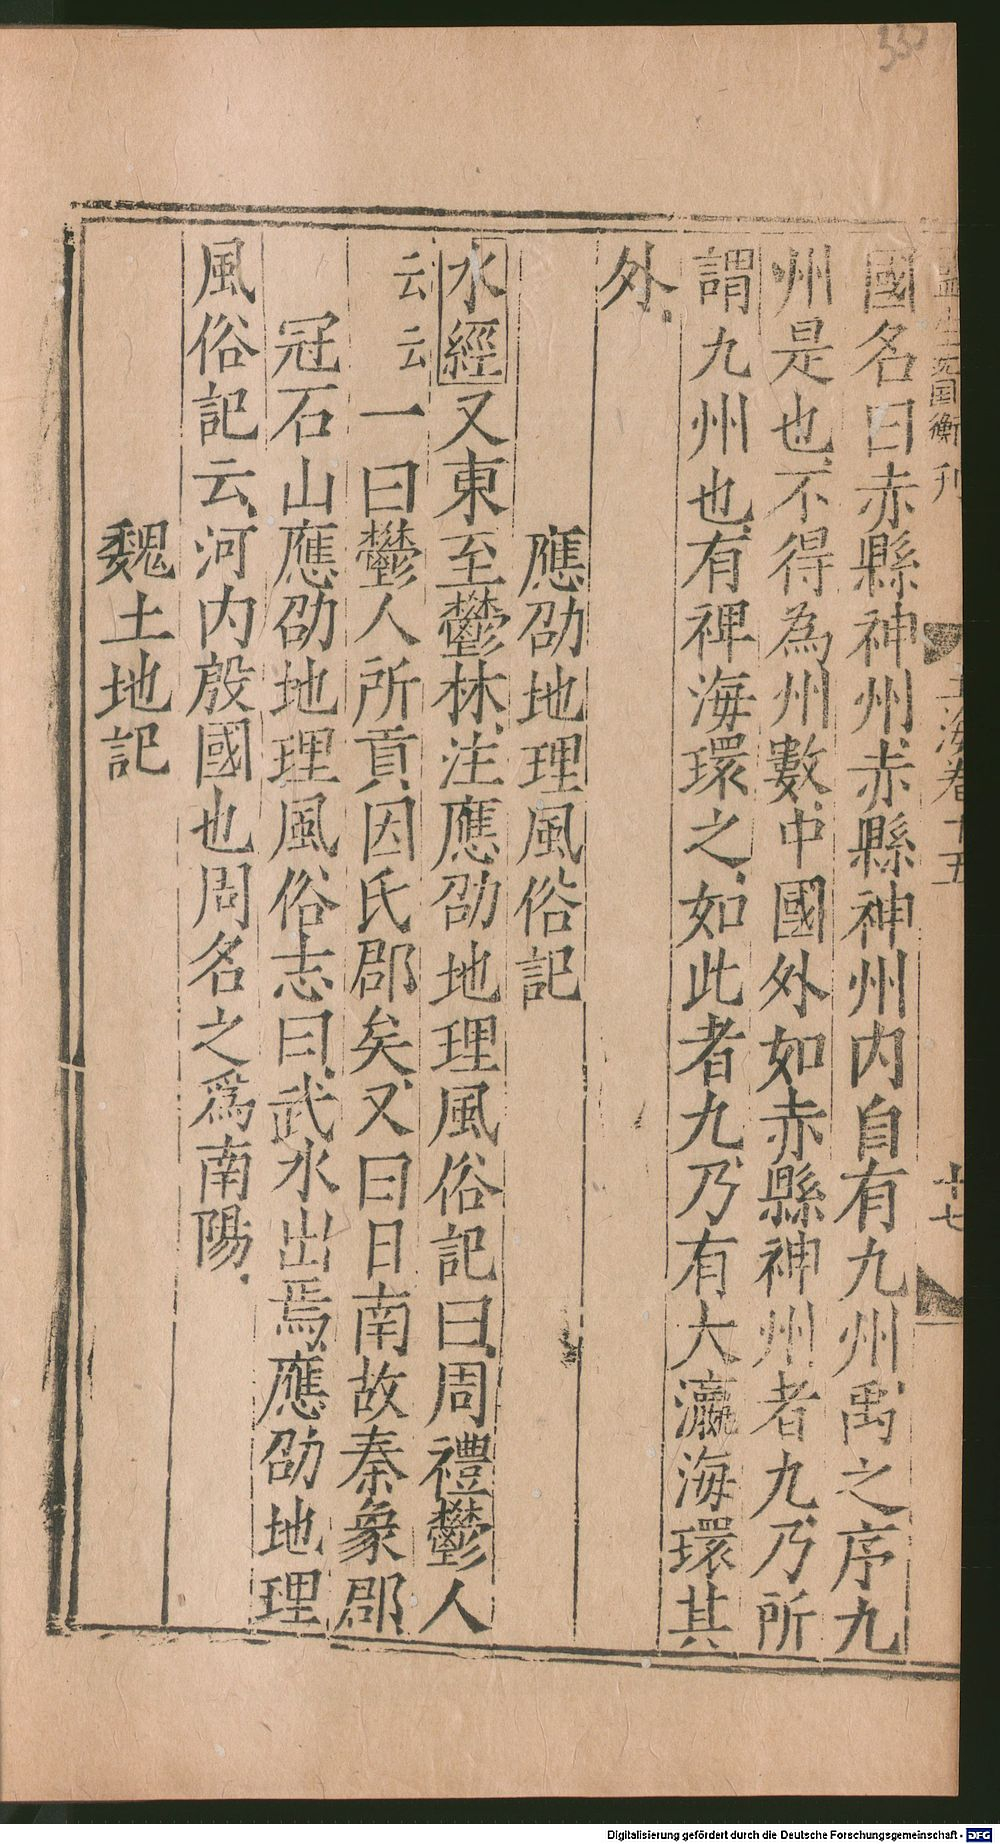 國名曰赤縣神州赤縣神州內自有九州禹之序九
州是也不得為州數中國外如赤縣神州者九乃所
謂九州也有裨海環之如此者九乃有大瀛海環其
外
應劭地理風俗記
水經又東至鬱林注應劭地理風俗記曰周禮鬱人
云云一曰鬱人所貢因氏郡矣又曰日南故秦象郡
冠石山應劭地理風俗志曰武水出焉應劭地理
風俗記云河内殷國也周名之爲南陽
魏土地記
玉海卷十五
十七
Digitalisierung gefördert durch die Deutsche Forschungsgemeinschaft - DFG